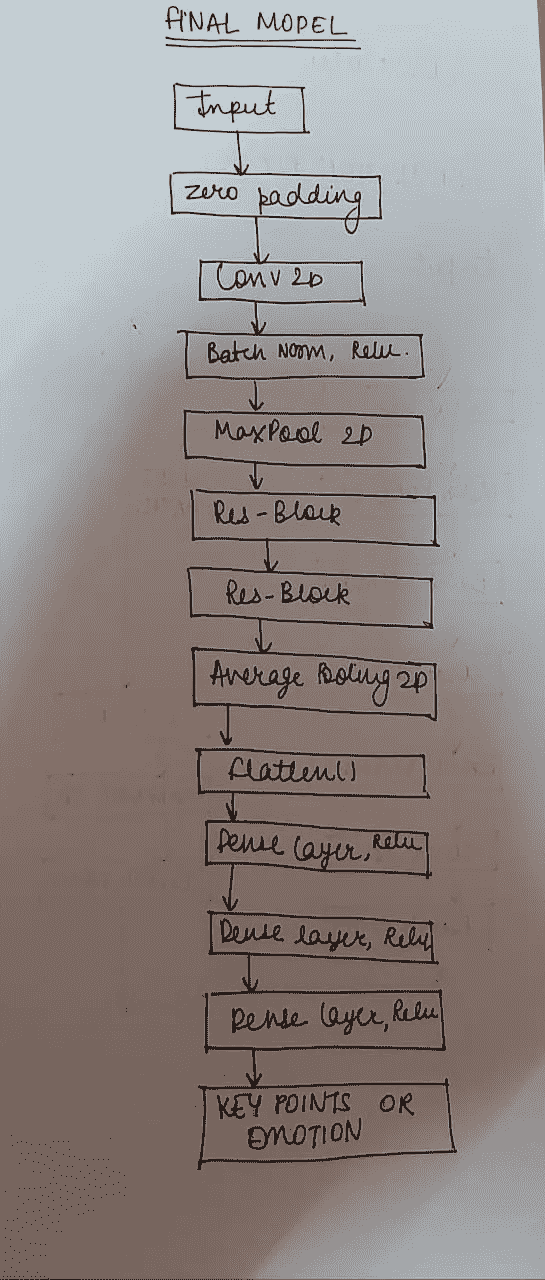 FINAL MODEL
Input
zero padding
Conv 2D
Batch Norm, Relu.
MaxPool 2D
Res-Block
Res-Block
Average Pooling 2D
flatten()
Dense layer, Relu
Dense layer, Relu
Dense layer, Relu
KEY POINTS OR
EMOTION